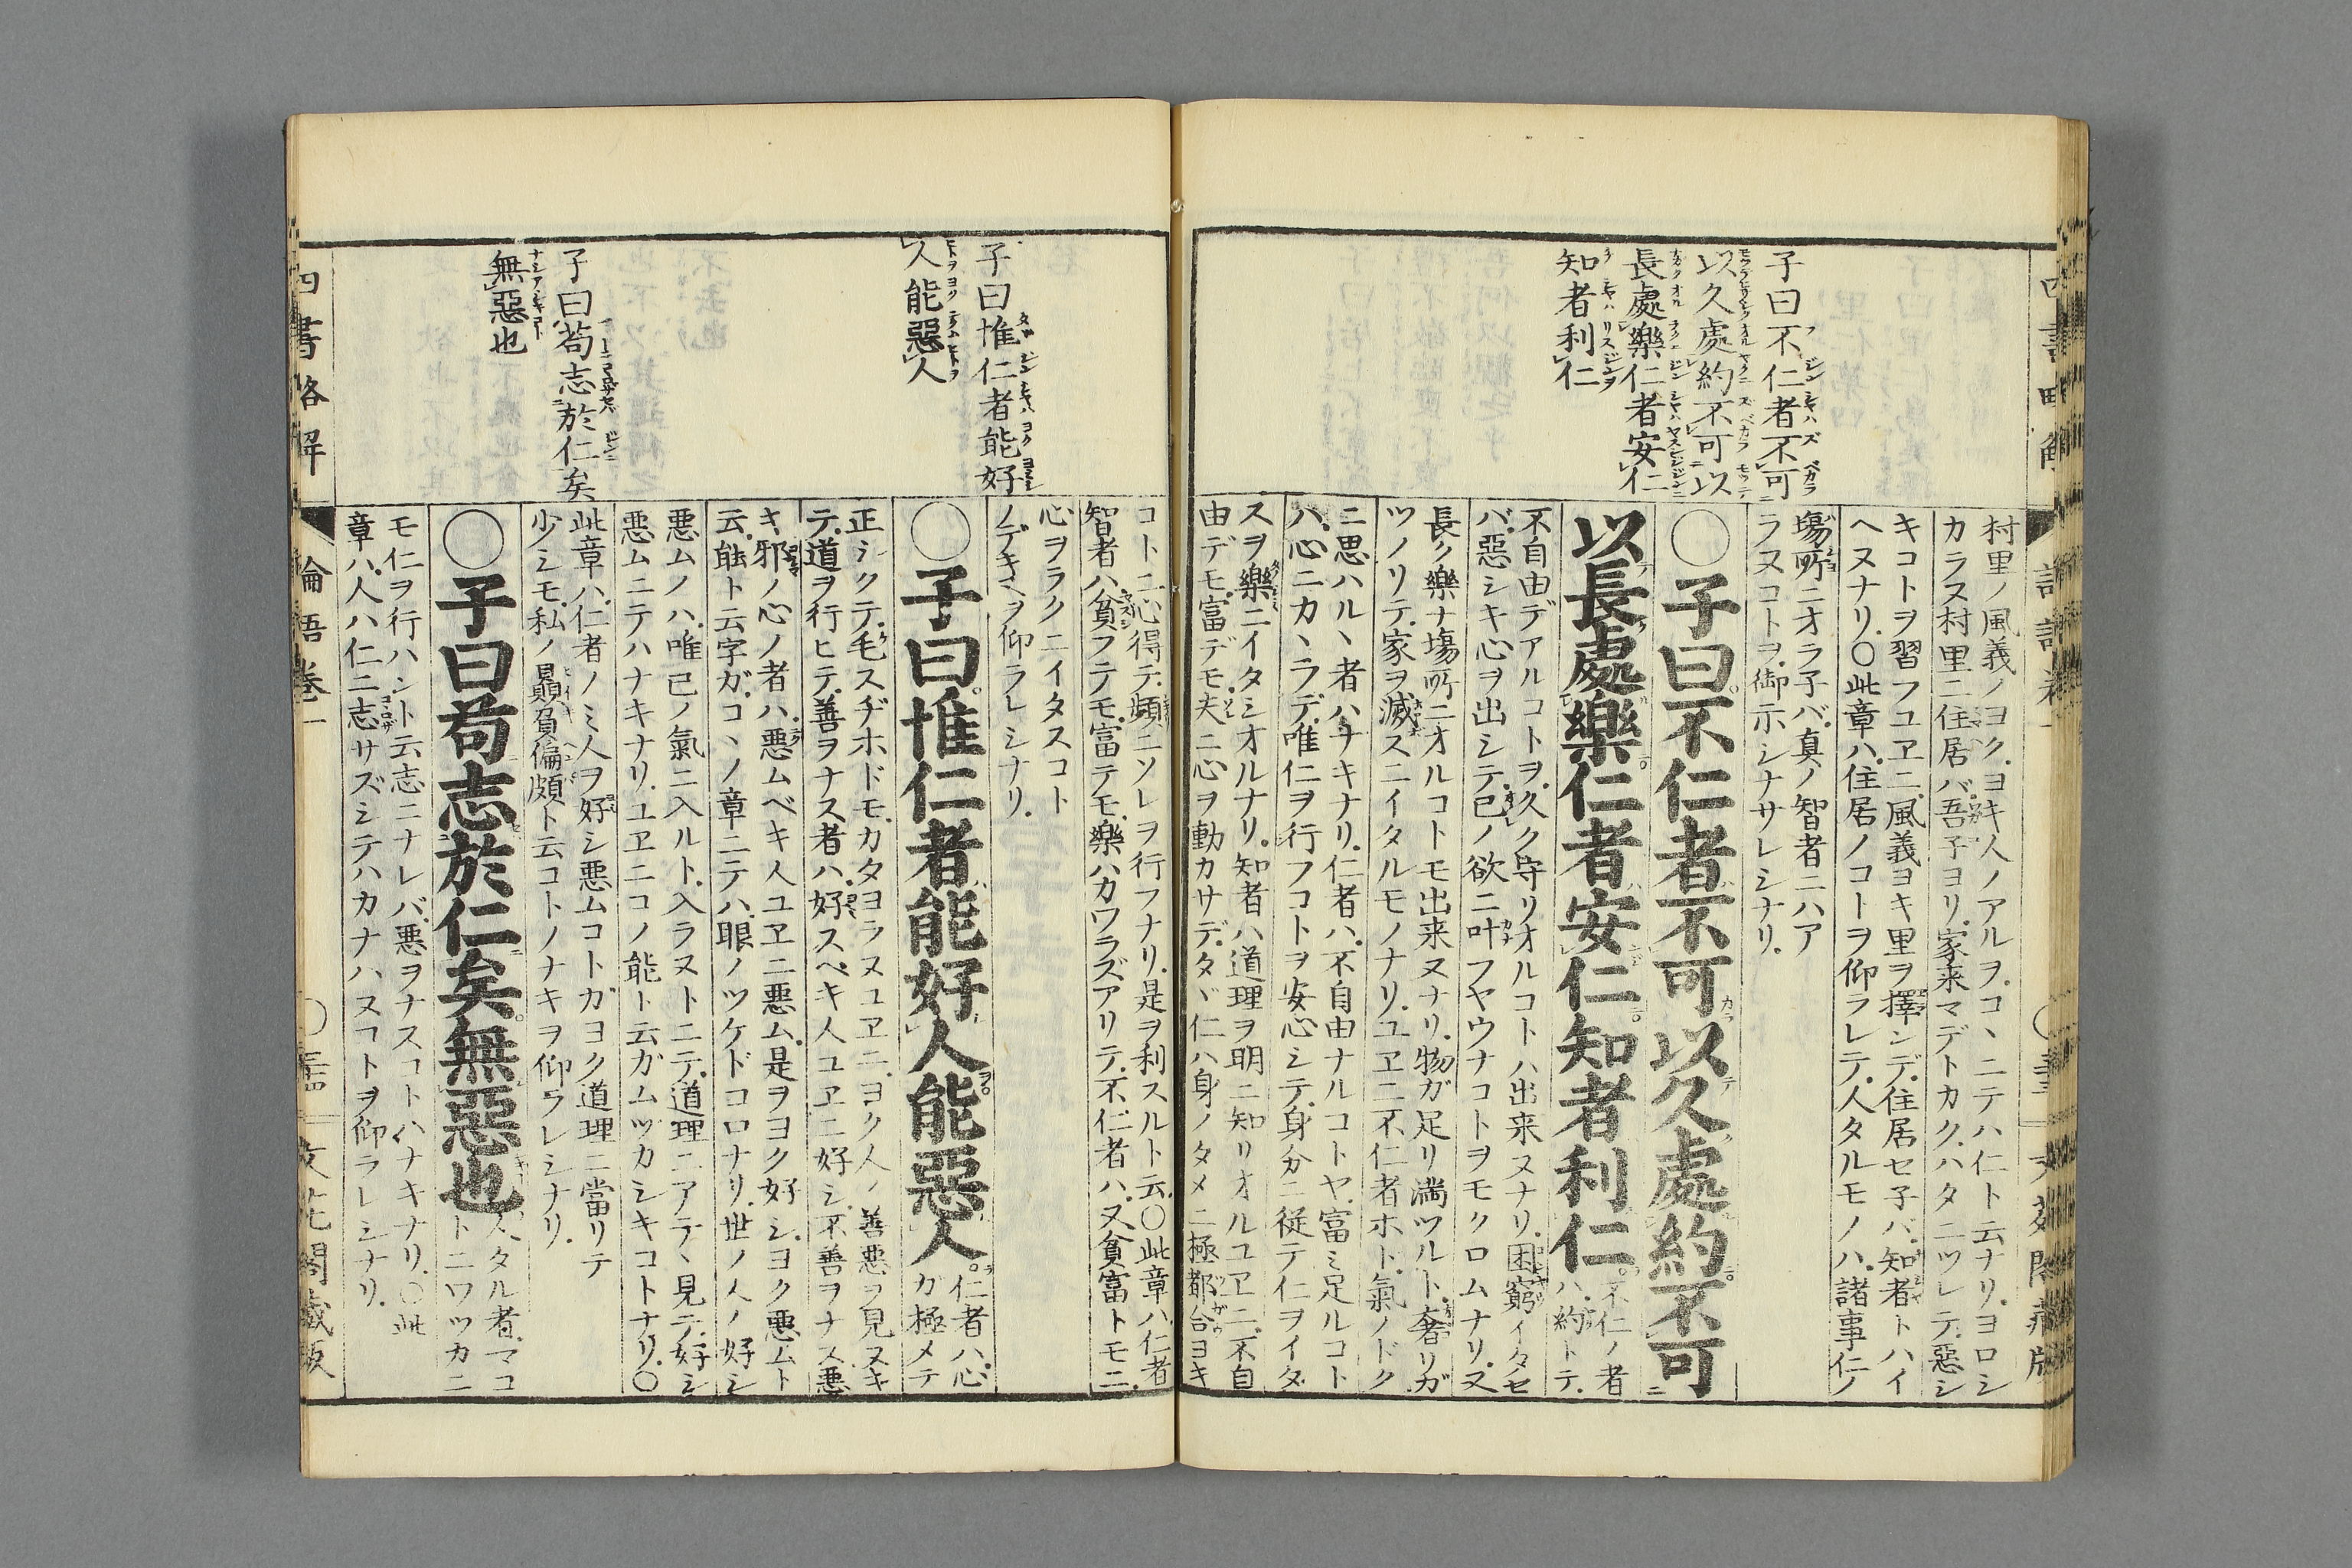 子曰不仁者不可
以久處約不可以
長處樂仁者安仁
知者利仁
村里ノ風義ノヨク.ヨキ人ノアルヲ.コヽニテハ仁ト云ナリ.ヨロシ
カラス村里ニ住居バ.吾子ヨリ.家来マデトカク.ハタニツレテ.惡シ
キコトヲ習フユヱニ.風義ヨキ里ヲ擇ンデ.住居セ子バ.知者トハイ
ヘヌナリ.〇此章ハ.住居ノコトヲ仰ラレテ.人タルモノハ.諸事仁ノ
塲所ニオラ子バ.真ノ智者ニハア
ラヌコトヲ.御示シナサレシナリ.
〇子曰不仁者不可以久處約不可
以長處樂仁者安仁知者利仁
不仁ノ者
ハ.約トテ.
不自由デアルコトヲ.久ク守リオルコトハ出来ヌナリ.困窮イタセ
バ.惡シキ心ヲ出シテ.己ノ欲ニ叶フヤウナコトヲモクロムナリ.又
長ク樂ナ塲所ニオルコトモ出来ヌナリ.物ガ足リ満ツルト.奢リガ
ツノリテ.家ヲ滅スニイタルモノナリ.ユヱニ不仁者ホド.氣ノドク
ニ思ハルヽ者ハナキナリ.仁者ハ.不自由ナルコトヤ.富ミ足ルコト
ハ.心ニカヽラデ.唯仁ヲ行フコトヲ安心シテ.身分ニ従テ仁ヲイタ
スヲ樂ニイタシオルナリ.知者ハ道理ヲ明ニ知リオルユヱニ.不自
由デモ.富デモ.夫ニ心ヲ動カサデ.タヾ仁ハ身ノタメニ極都合ヨキ
四書略解
論語卷一
子曰惟仁者能好
人能惡人
子曰苟志於仁矣
無惡也
コトニ心得テ.頻ニソレヲ行フナリ.是ヲ利スルト云.〇此章ハ仁者
智者ハ.貧フテモ.富テモ.樂ハカワラズアリテ.不仁者ハ.又貧富トモニ
心ヲラクニイタスコト
ノデキヌヲ仰ラレシナリ.
〇子曰惟仁者能好人能惡人
仁者ハ.心
ガ極メテ
正シクテ.毛スヂホドモ.カタヨラヌユヱニ.ヨク人ノ善惡ヲ見ヌキ
テ.道ヲ行ヒテ.善ヲナス者ハ.好スベキ人ユヱニ好シ.不善ヲナス惡
キ.邪ノ心ノ者ハ.悪ムベキ人ユヱニ悪ム.是ヲヨク好シ.ヨク悪ムト
云.能ト云字ガ.コヽノ章ニテハ.眼ノツケドコロナリ.世ノ人ノ好シ
悪ムノハ.唯己ノ氣ニ入ルト.入ラヌトニテ.道理ニアテヽ見テ.好シ
悪ムニテハナキナリ.ユヱニコノ能ト云ガムツカシキコトナリ.〇
此章ハ.仁者ノミ人ヲ好シ悪ムコトガヨク道理ニ當リテ
少シモ.私ノ贔負偏頗ト云コトノナキヲ仰ラレシナリ.
〇子曰苟志於仁矣無惡也
人タル者.マコ
トニワツカニ
モ仁ヲ行ハント云志ニナレバ.悪ヲナスコトハナキナリ.〇此
章ハ.人ハ仁ニ志サズシテハカナハヌコトヲ仰ラレシナリ.
四書略解
論語卷一